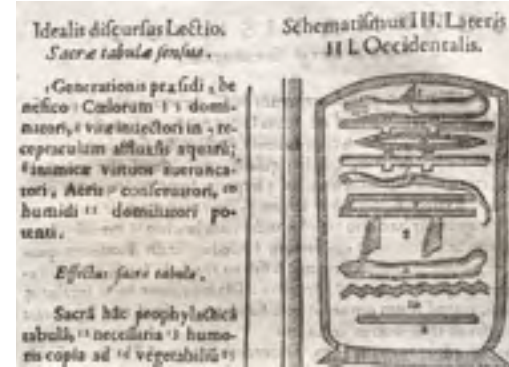 Idealis discursus Lectio.
Sacræ tabulæ sensus.
Generationis præsidi, be
nefico Cœlorum domi-
natori, vitæ in , re-
ceptaculum affluxus aquarũ;
inimicæ virtutis auerunca-
tori, Aeris conseruatori, 10
humidi 11 dominatori po-
tenti.
Effectus sacræ tabulæ.
Sacrâ hâc prophylacticâ
tabulâ, 12 necessaria 13 humo-
ris copia ad 14 vegetabiliũ
Schematismus III. Lateris
III. Occidentalis.